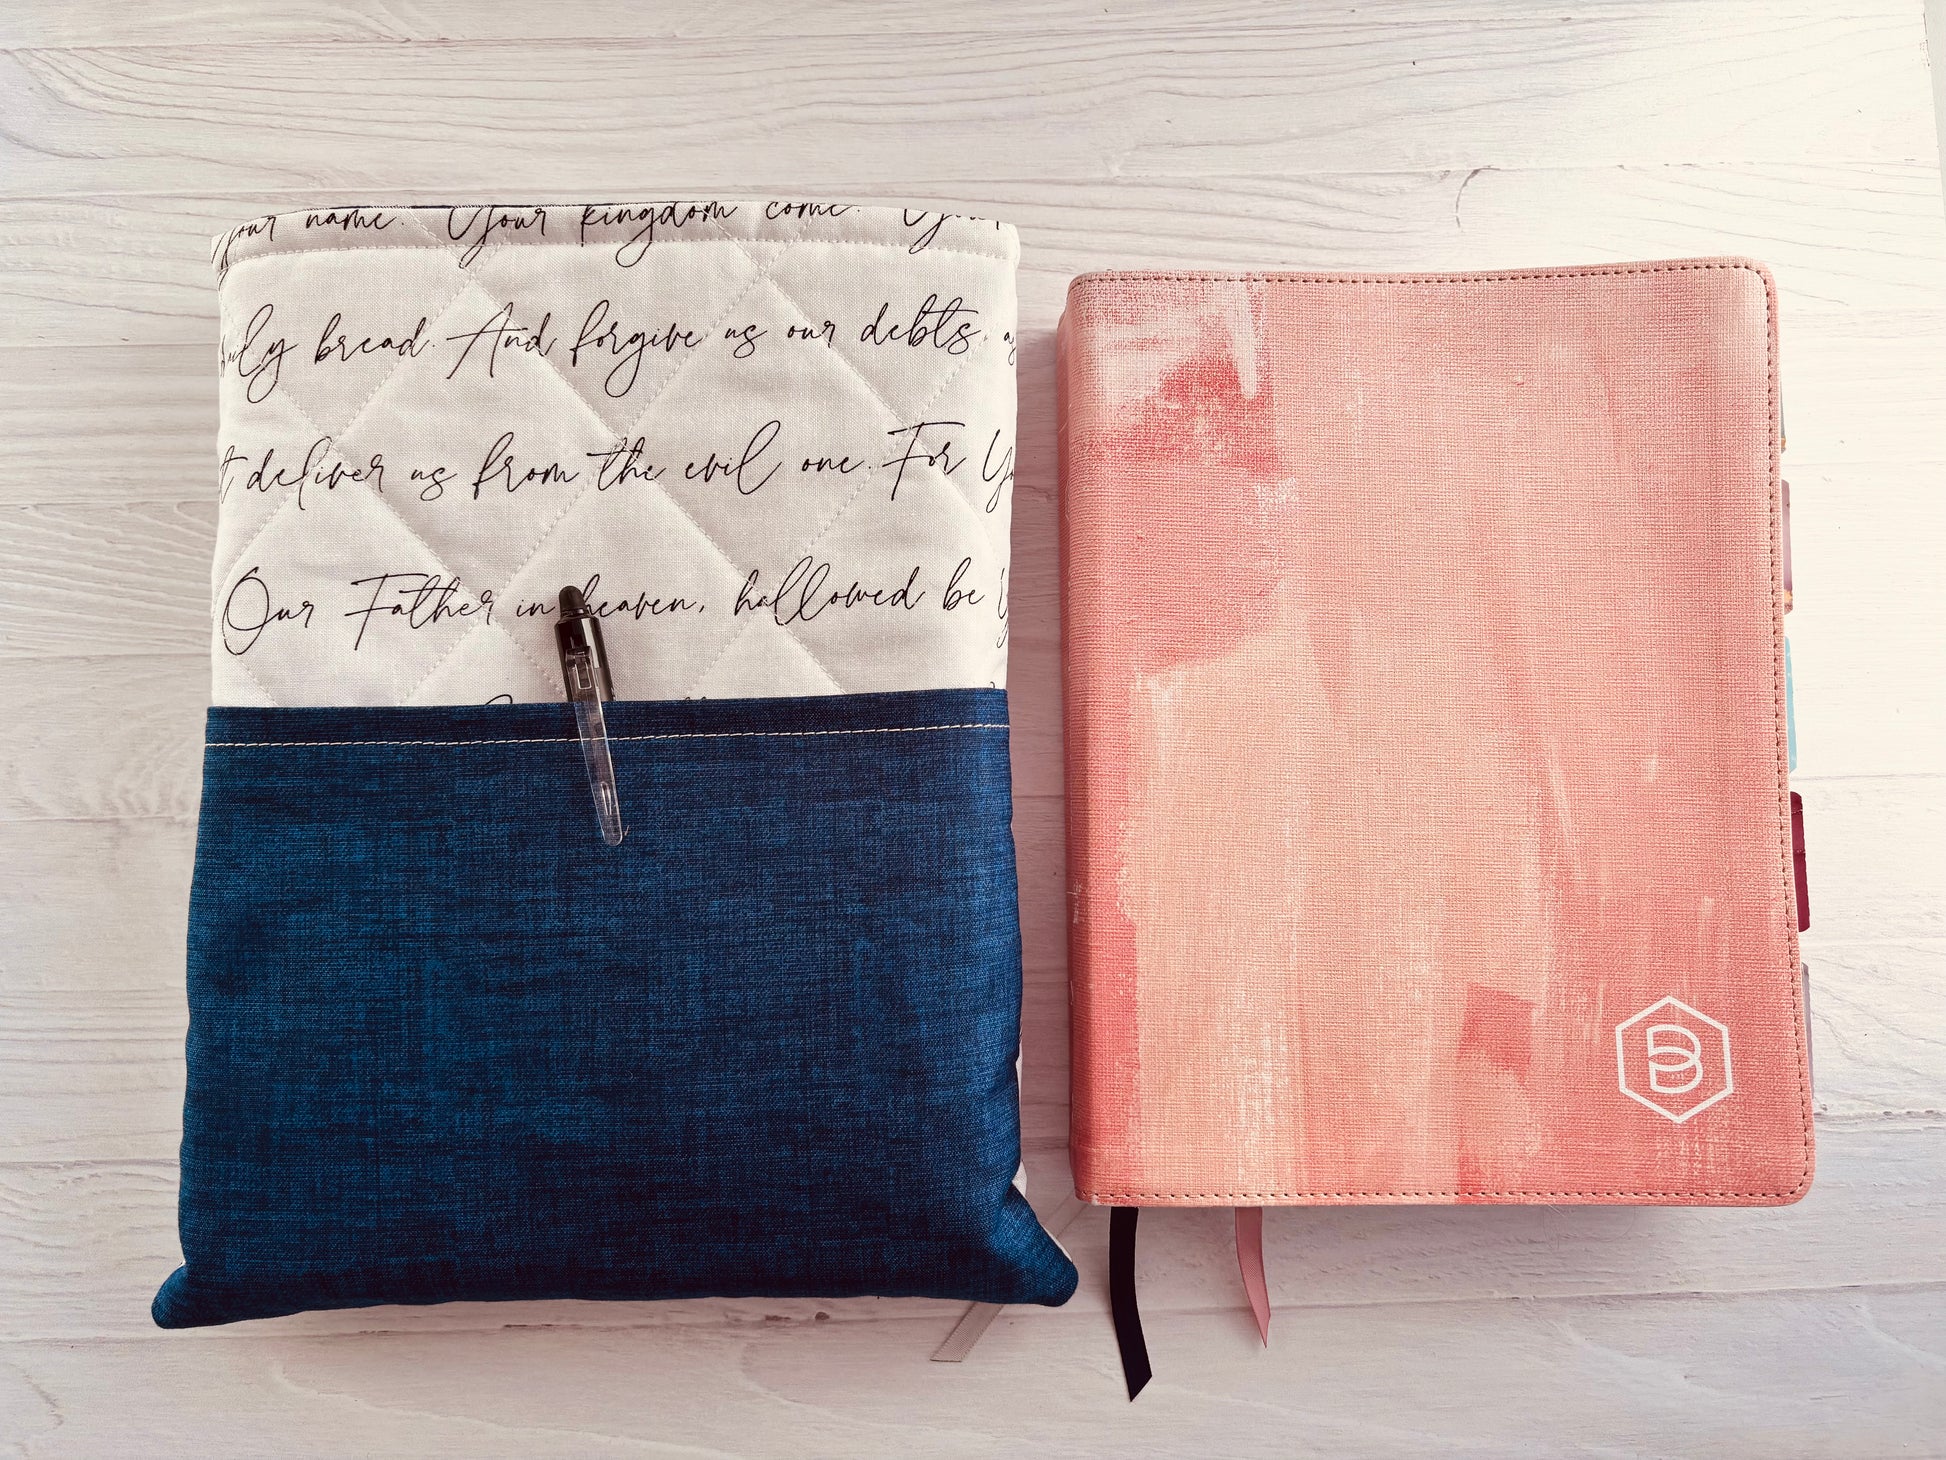 your name. Your kingdom come. Your
daily bread. And forgive us our debts, as
t deliver us from the evil one. For Yo
Our Father in heaven, hallowed be Y
B